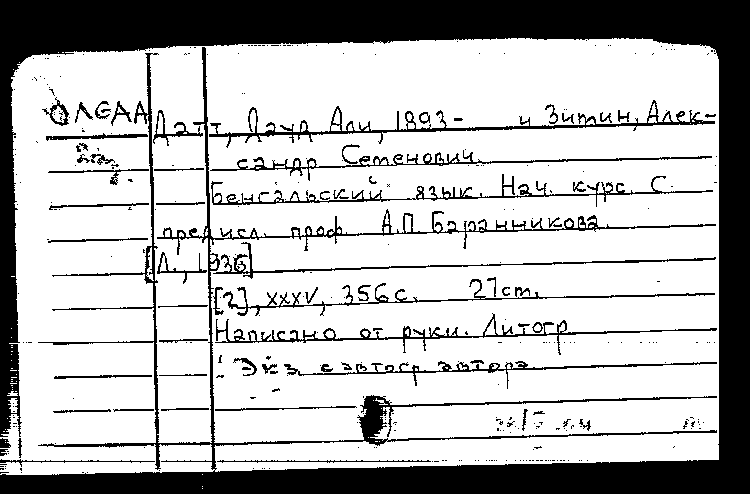 OЛЄАА Датт, Дауд Али, 1893- и Зимин, Алек-
сандр Семенович.
Бенгальский язык. Нач. курс. С
предисл. проф. А.П. Баранникова.
[Л., 1936]
[2], xxxv, 356 с. 27 cm.
Написано от руки. Литогр
Экз. с автогр. автора